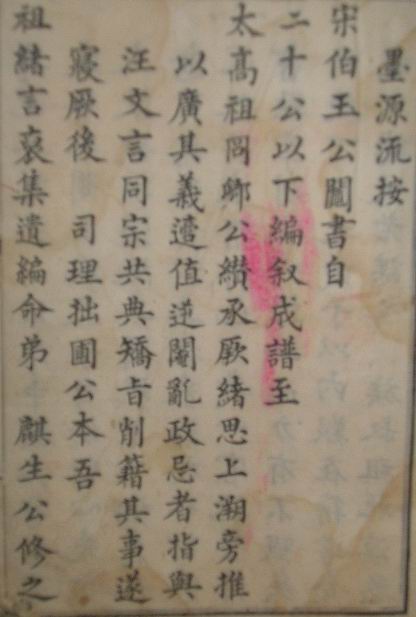 墨源流按
宋伯玉公圖書自
二十公以下編叙成譜至
太高祖岡卿公纘承厥緒思上溯旁推
以廣其義遭值逆閹亂政忌者指與
汪文言同宗共典矯旨削籍其事遂
寢厥後司理拙圃公本吾
祖緒言裒集遺編命弟麒生公修之